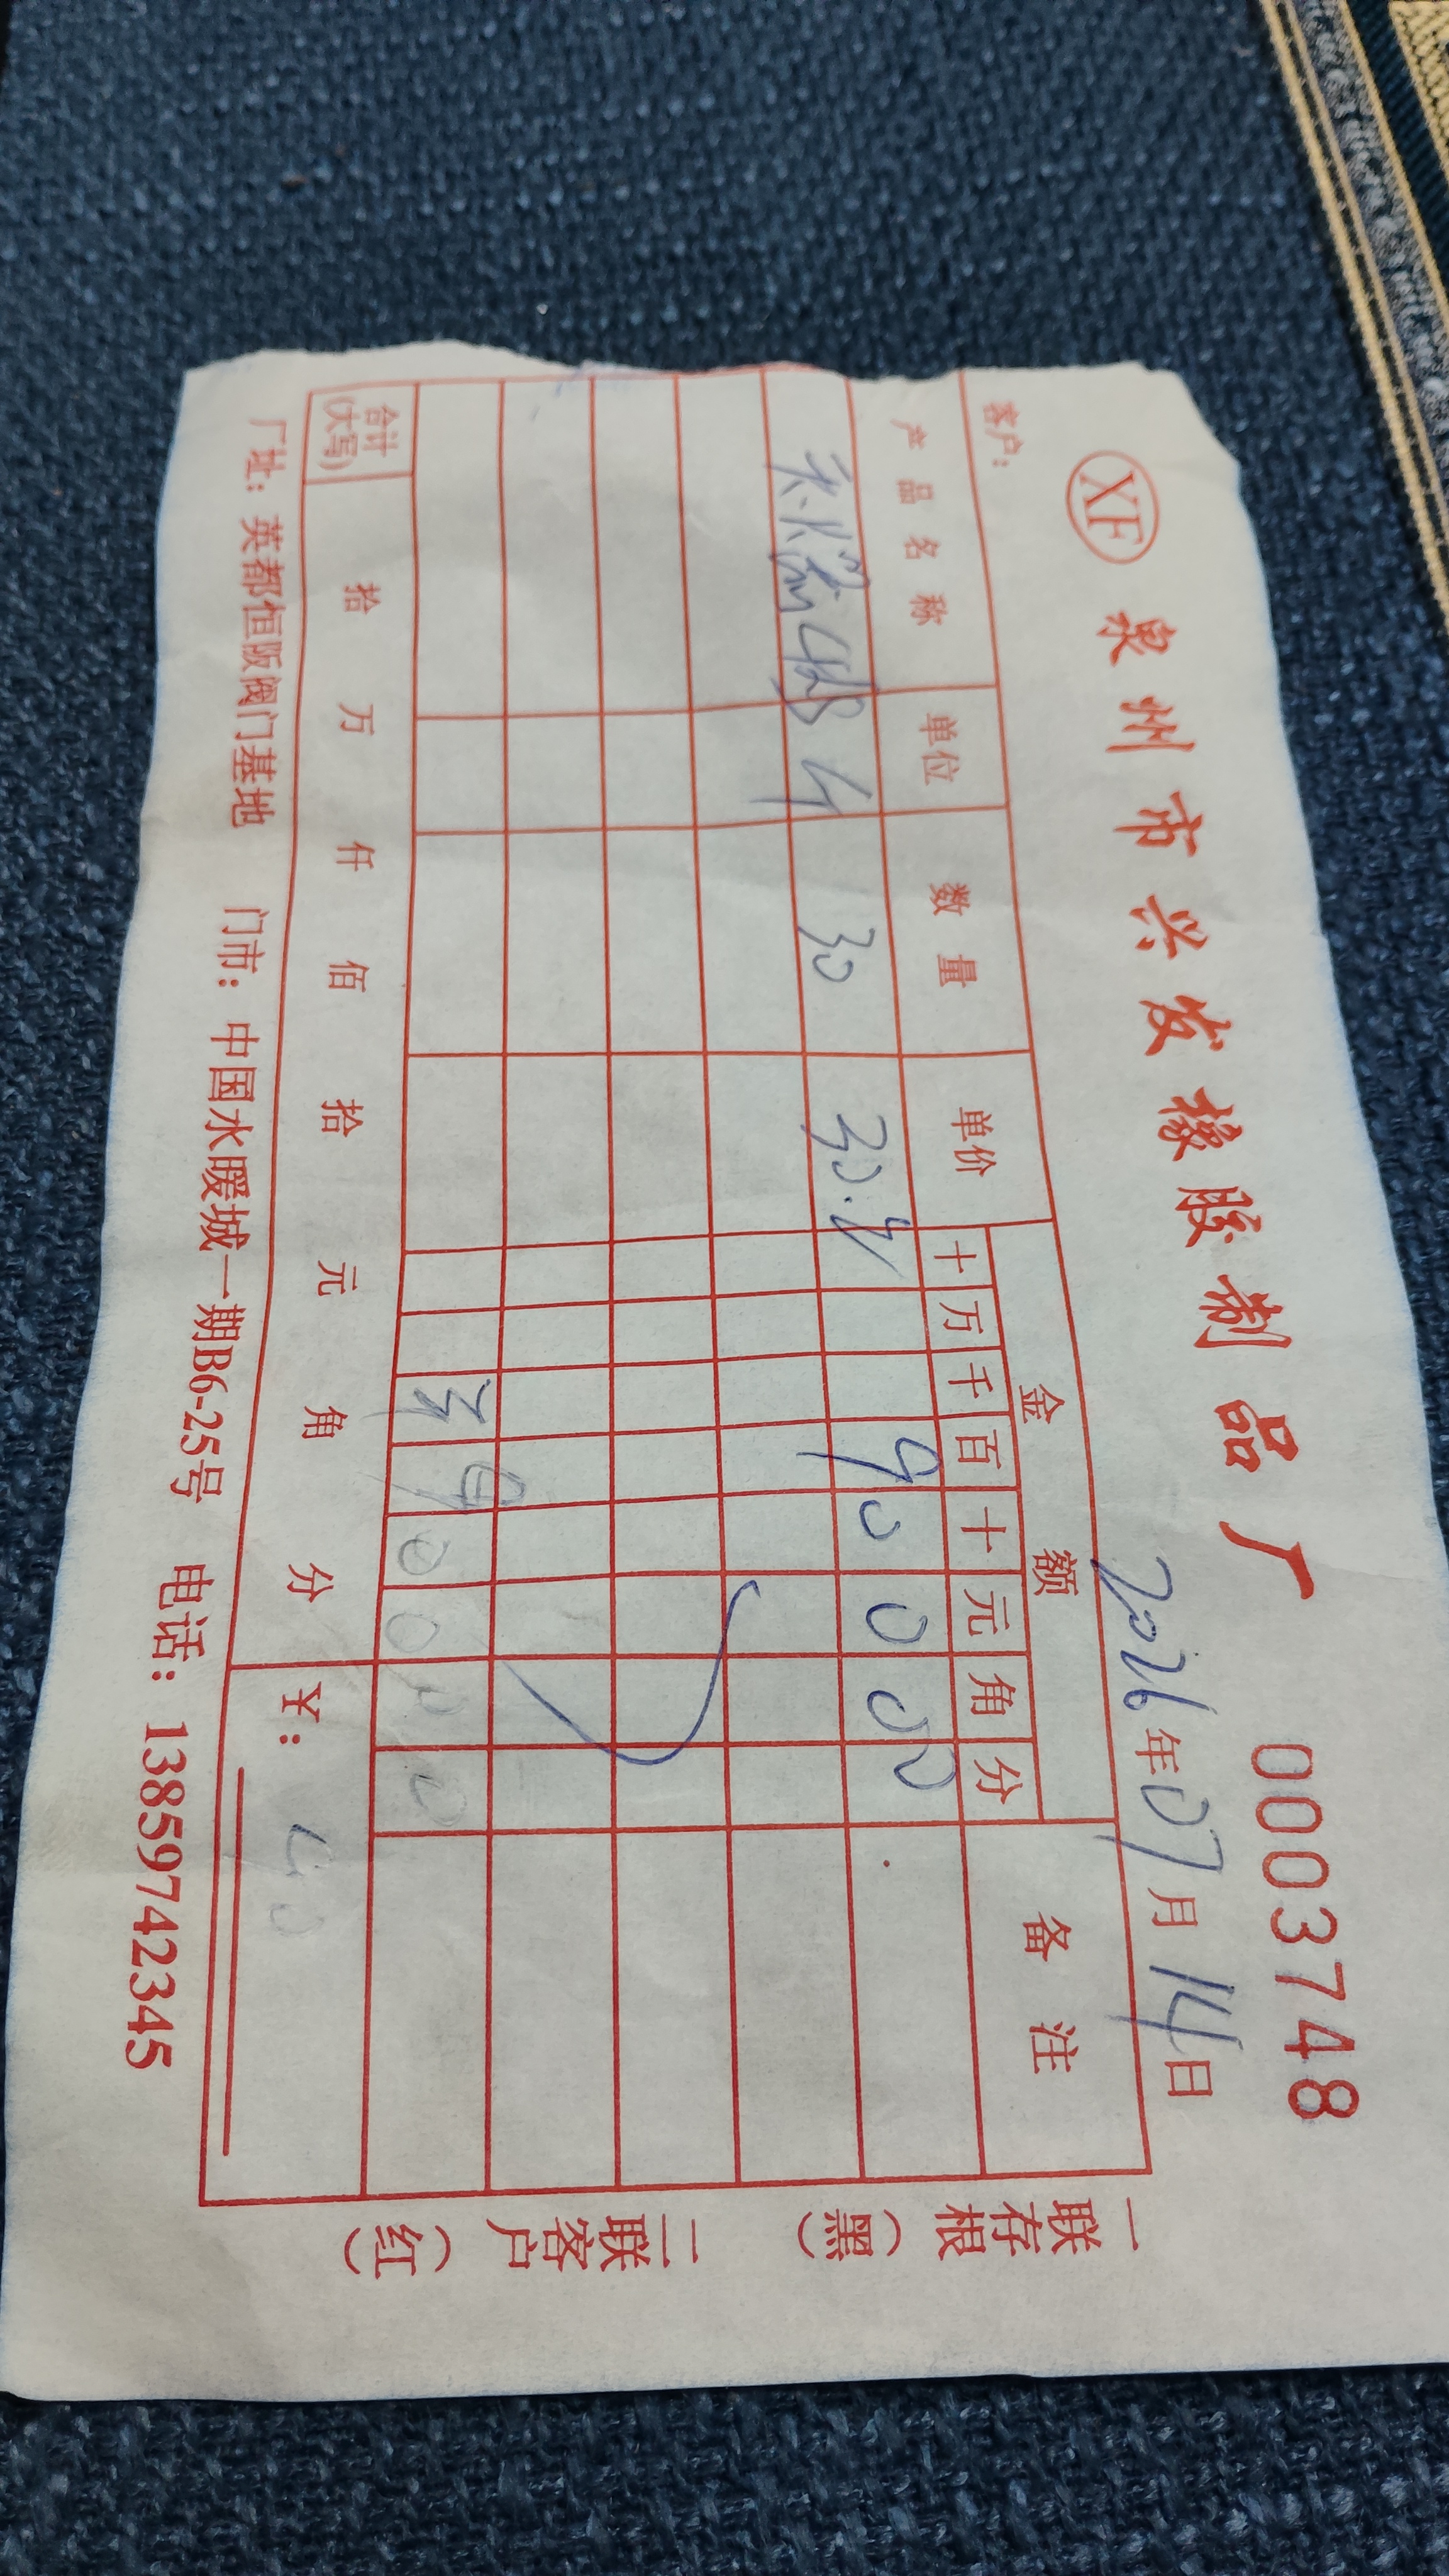 XF 泉州市兴发橡胶制品厂 0003748
客户： 2026年07月14日
产品名称 单位 数量 单价 金额 备注
十 万 千 百 十 元 角 分
30 30.2 9 0 0 0 0
9 0 0
合计(大写) 拾 万 仟 佰 拾 元 角 分 ¥：
厂址：英都恒阪阀门基地 门市：中国水暖城一期B6-25号 电话：13859742345
一联存根（黑） 二联客户（红）